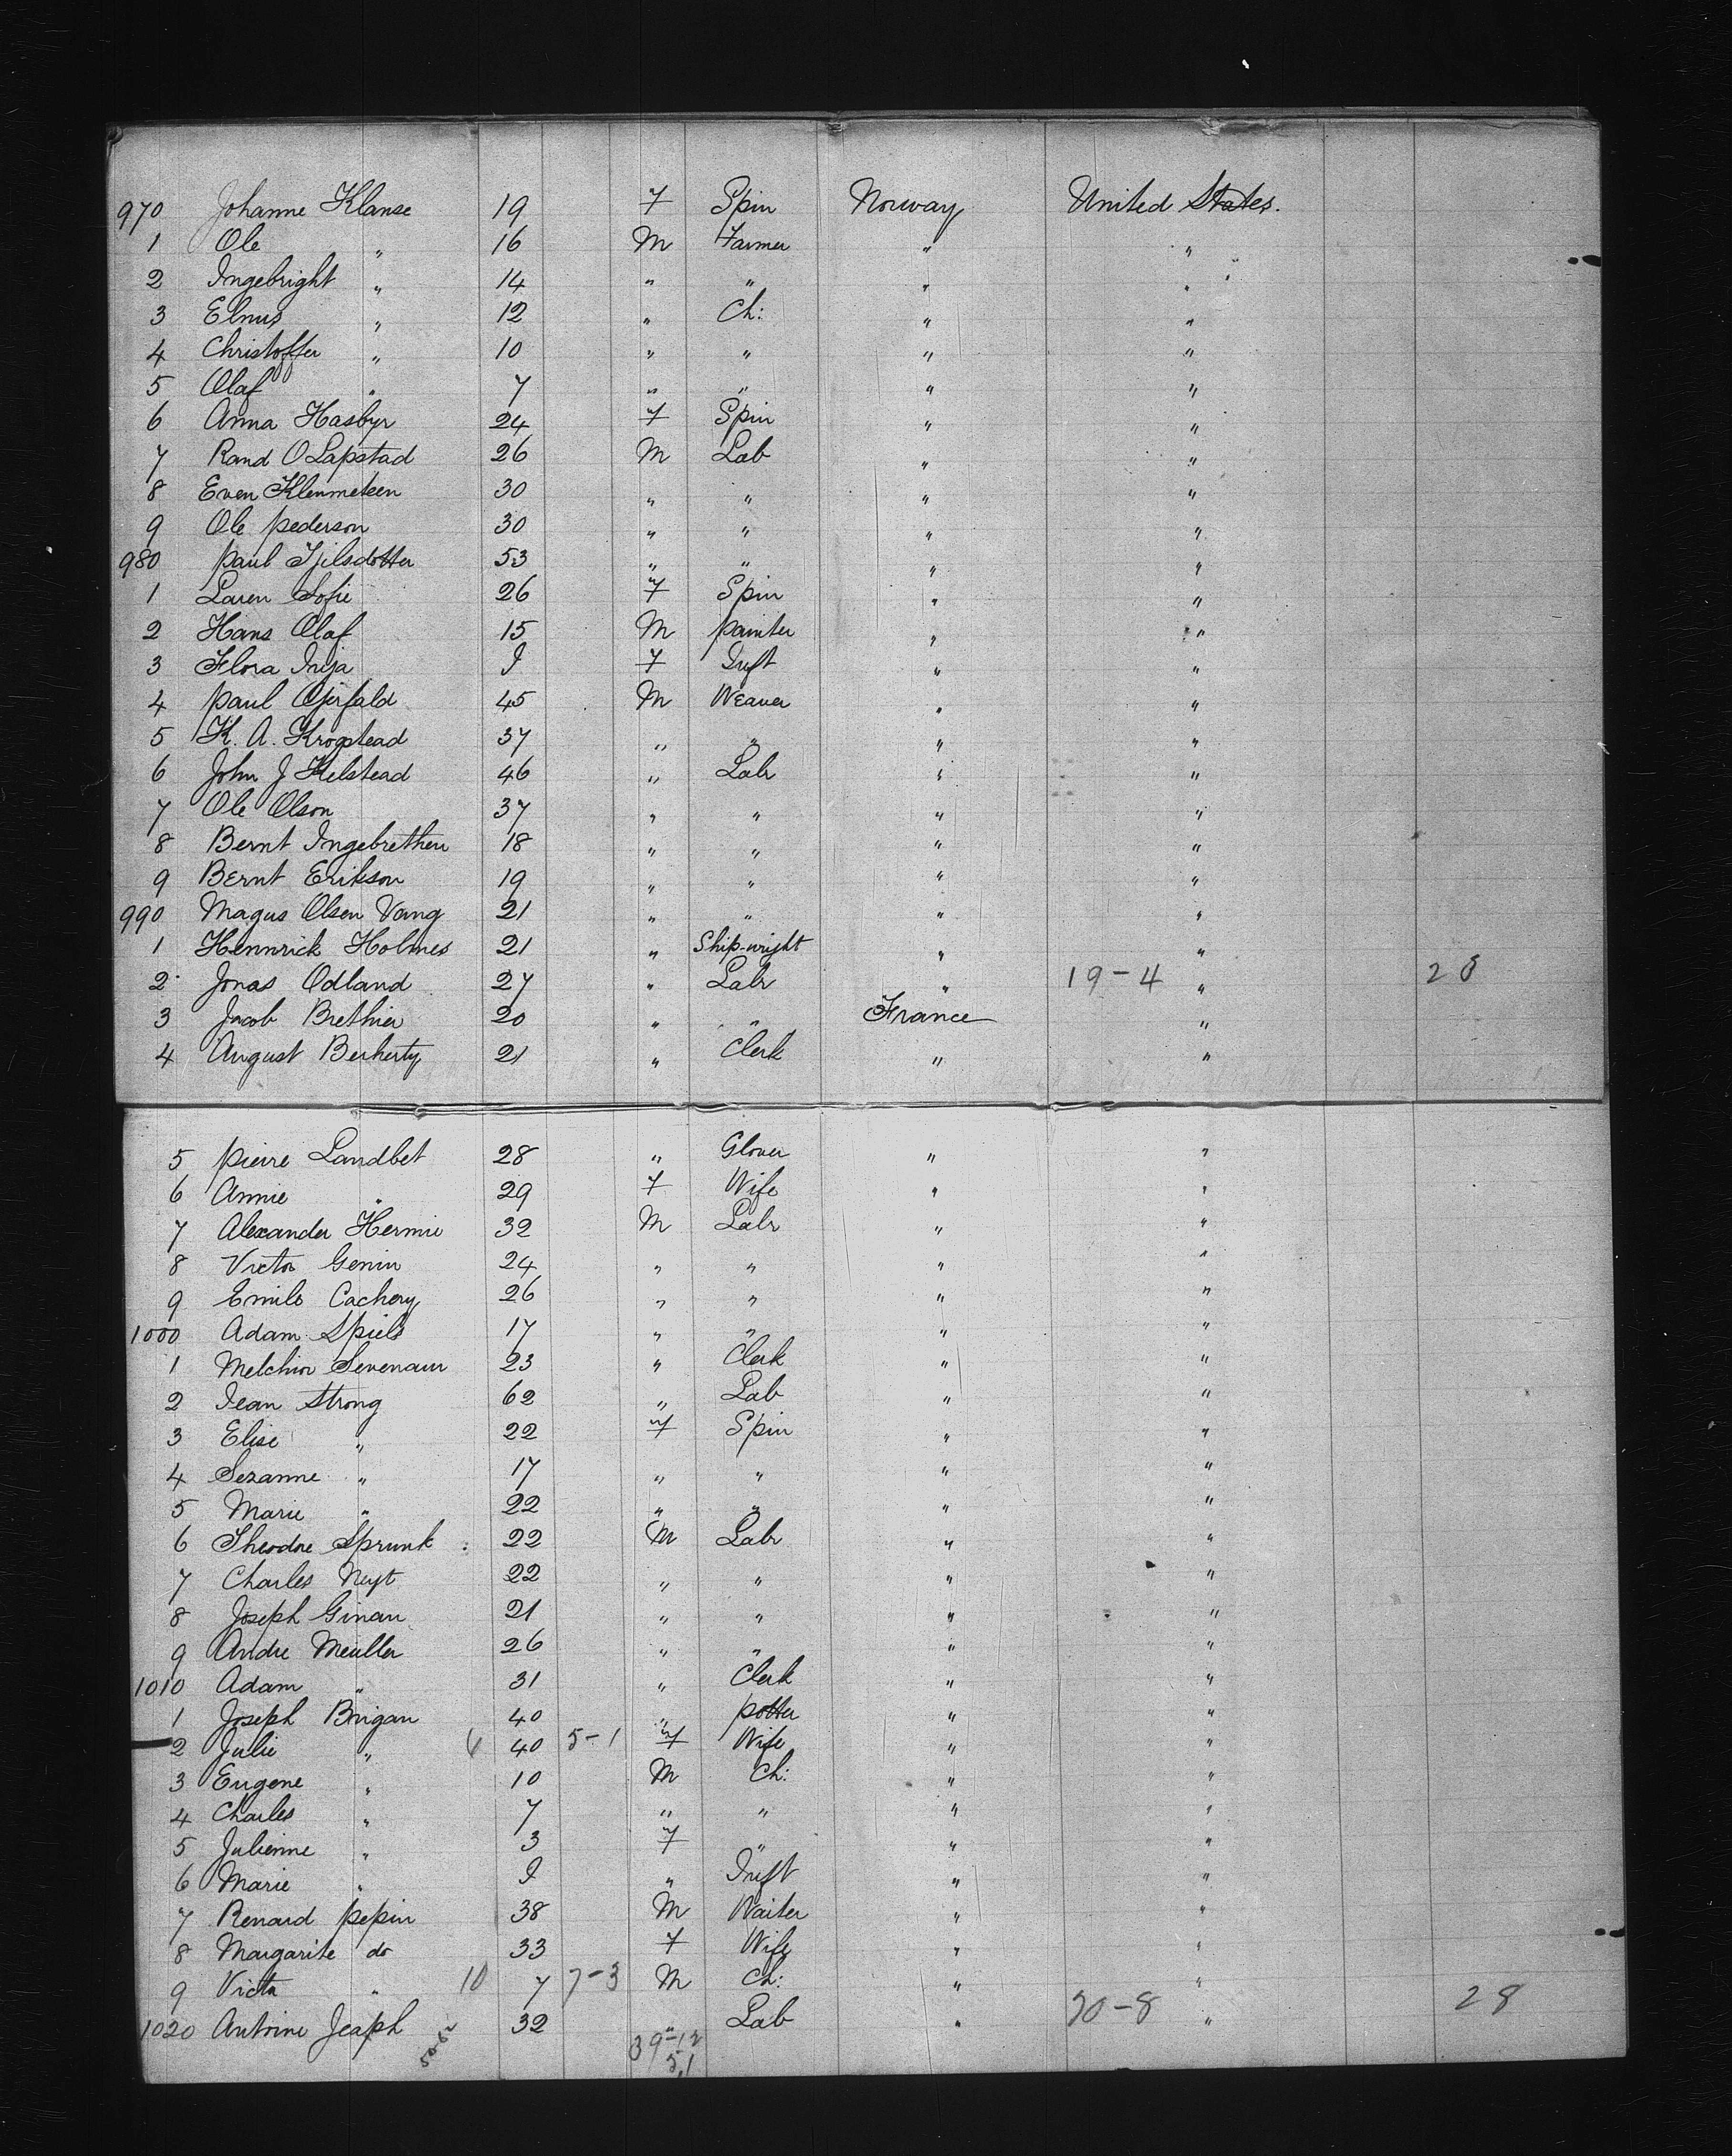 970 Johanne Klanse 19 F Spin Norway United States.
1 Ole " 16 M Farmer " "
2 Ingebright " 14 " " " "
3 Elnus " 12 " Ch: " "
4 Christoffer " 10 " " " "
5 Olaf " 7 " " " "
6 Anna Hasbyr 24 F Spin " "
7 Rand O Lapstad 26 M Lab " "
8 Even Klenmetsen 30 " " " "
9 Ole pederson 30 " " " "
980 paul Tjilsdotter 53 " " " "
1 Laren Sofie 26 F Spin " "
2 Hans Olaf 15 M painter " "
3 Flora Inja I F Inft " "
4 paul Gjerfald 45 M Weaver " "
5 K. A. Krogstead 37 " " " "
6 John J Kelstead 46 " Labr " "
7 Ole Olson 37 " " " "
8 Bernt Ingebrethen 18 " " " "
9 Bernt Erikson 19 " " " "
990 Magus Olsen Vang 21 " " " "
1 Hennrick Holmes 21 " Ship-wright " "
2 Jonas Odland 27 " Labr " 19-4 "
3 Jacob Brethier 20 " " France "
4 August Berherty 21 " Clerk " "
5 pierre Landbet 28 " Glover " "
6 Annie " 29 F Wife " "
7 Alexander Hermie 32 M Labr " "
8 Victor Genin 24 " " " "
9 Emile Cachery 26 " " " "
1000 Adam Spiels 17 " " " "
1 Melchior Sevenaur 23 " Clerk " "
2 Jean Strong 62 " Lab " "
3 Elise " 22 F Spin " "
4 Sezanne " 17 " " " "
5 Marie " 22 " " " "
6 Theodore Sprunk 22 M Labr " "
7 Charles Neyt 22 " " " "
8 Joseph Ginau 21 " " " "
9 Andre Meuller 26 " " " "
1010 Adam " 31 " Clerk " "
1 Joseph Brigau 40 " potter " "
2 Julie " 40 5-1 F Wife " "
3 Eugene " 10 M Ch: " "
4 Charles " 7 " " " "
5 Julienne " 3 F " " "
6 Marie " I " Inft " "
7 Renard pepin 38 M Waiter " "
8 Margarite do 33 F Wife " "
9 Victor " 10 7 7-3 M Ch: " "
1020 Antoine Jeaph 32 " Lab " 20-8 " 28
39-12
5.1